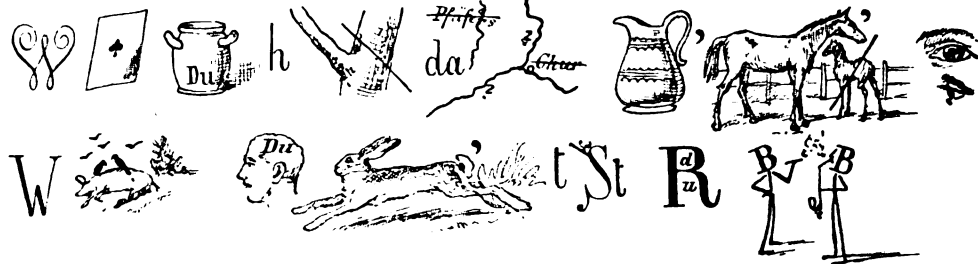 W Du h da Pfäfers ? Chur ? ’ ’
W Du ’ t St R du B B